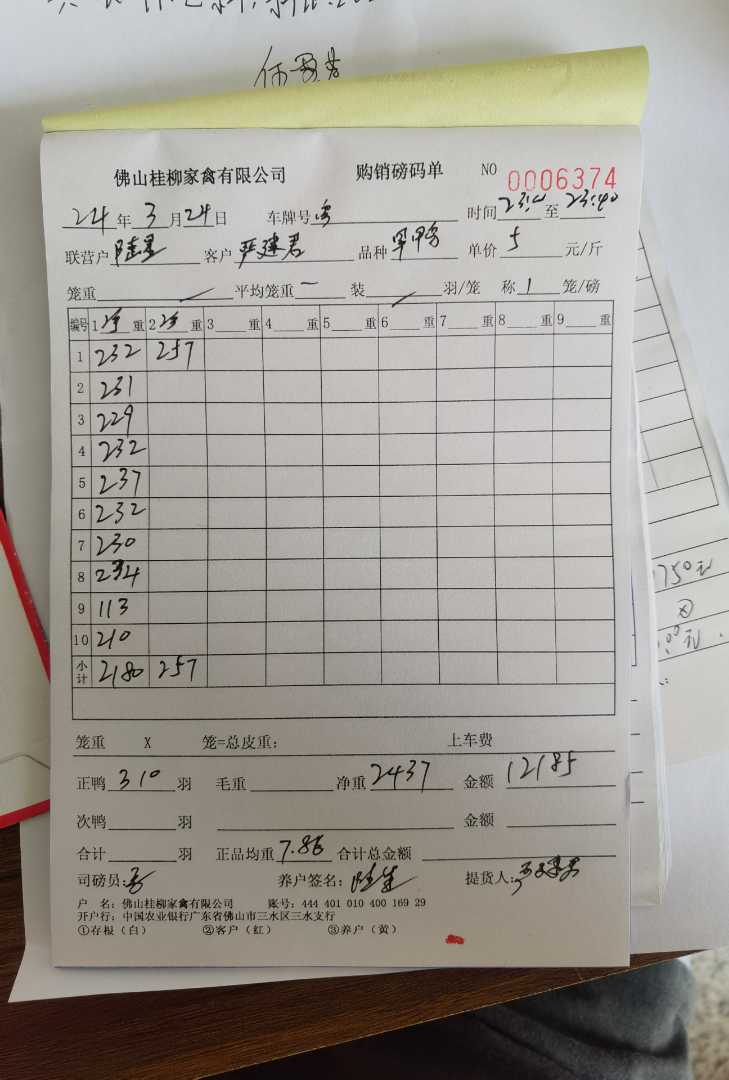 佛山桂柳家禽有限公司 购销磅码单 NO 0006374
24年3月24日 车牌号 时间 至 23:40
联营户 客户 严建君 品种 单价 5 元/斤
笼重 平均笼重 装 羽/笼 称 1 笼/磅
编号 1 重 2 重 3 重 4 重 5 重 6 重 7 重 8 重 9 重
1 232 257
2 231
3 229
4 232
5 237
6 232
7 230
8 234
9 113
10 210
小计 2180 257
笼重 X 笼=总皮重: 上车费
正鸭 310 羽 毛重 净重 2437 金额 12185
次鸭 羽 金额
合计 羽 正品均重 7.86 合计总金额
司磅员: 养户签名: 提货人:
户 名: 佛山桂柳家禽有限公司 账号: 444 401 010 400 169 29
开户行: 中国农业银行广东省佛山市三水区三水支行
①存根（白） ②客户（红） ③养户（黄）